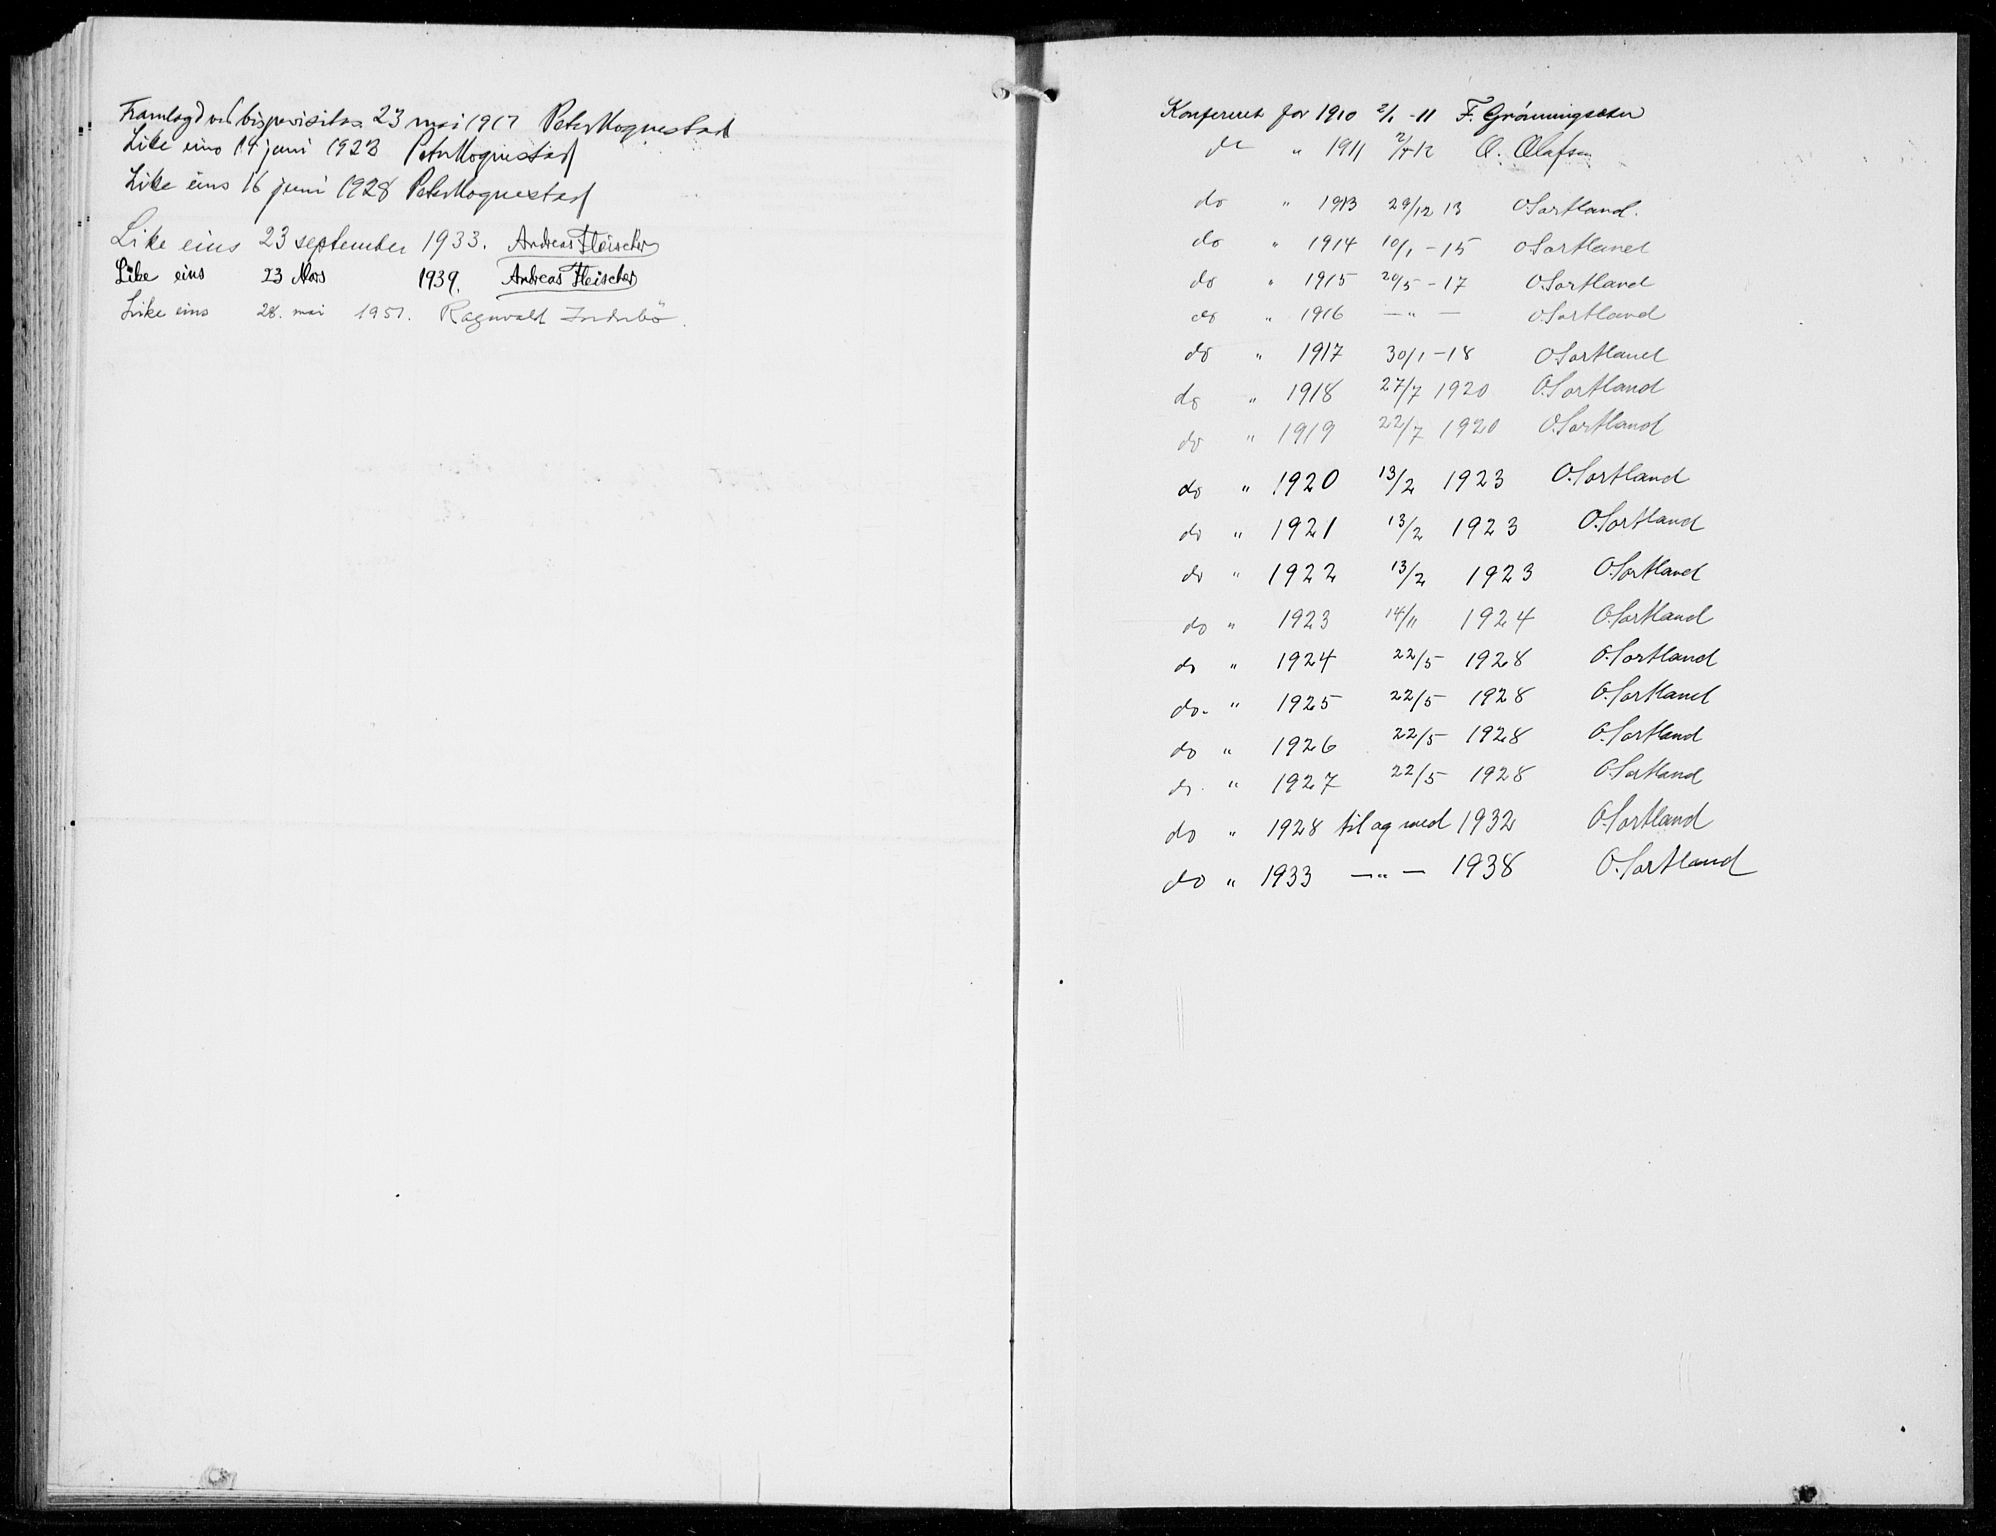 Framlagd ved bispevisitas 23 mai 1917 Peter Hognestad
Like eins 14 juni 1923 Peter Hognestad
Like eins 16 juni 1928 Peter Hognestad
Like eins 23 september 1933. Andreas Fleischer
Like eins 23 Mars 1939. Andreas Fleischer
Like eins 28. mai 1951. Ragnvald Indrebö.
Konferert for 1910 2/1 -11 F. Grönningsæter
do " 1911 O. Olafsen
do " 1913 29/12 13 O Sortland.
do " 1914 10/1 - 15 O Sortland
do " 1915 20/5 - 17 O. Sortland
do " 1916 — " — O. Sortland
do " 1917 30/1 - 18 O Sortland
do " 1918 27/7 1920 O. Sortland
do " 1919 22/7 1920 O. Sortland
do " 1920 13/2 1923 O. Sortland
do " 1921 13/2 1923 O. Sortland
do " 1922 13/2 1923 O. Sortland
do " 1923 14/11 1924 O. Sortland
do " 1924 22/5 1928 O. Sortland
do. " 1925 22/5 1928 O. Sortland
do " 1926 22/5 1928 O. Sortland
do. " 1927 22/5 1928 O. Sortland
do " 1928 til og med 1932 O. Sortland
do " 1933 — " — 1938 O. Sortland